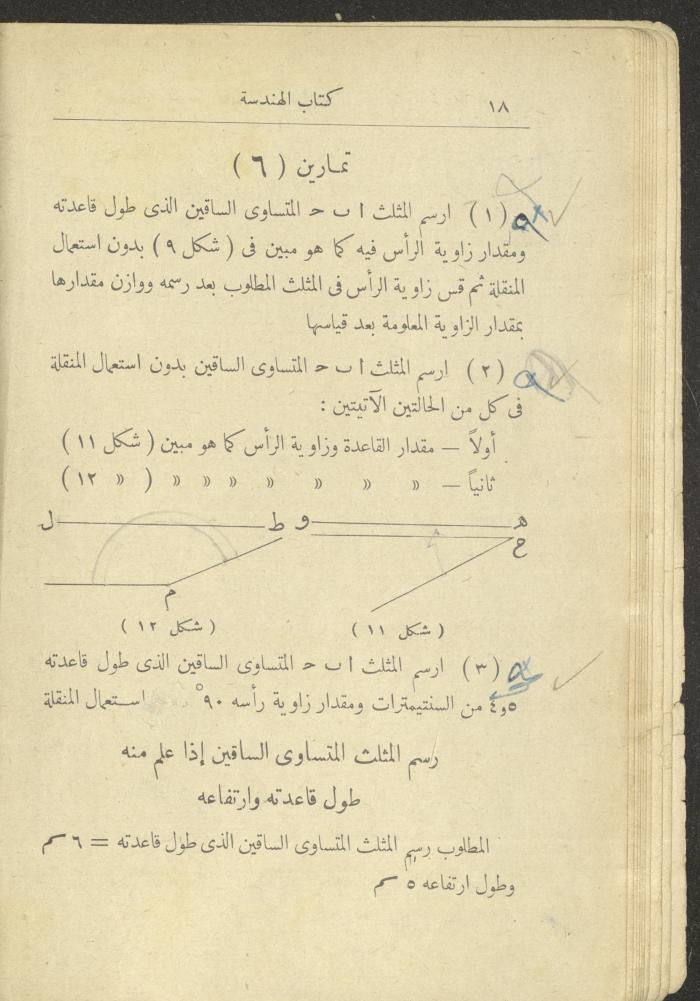 ١٨
كتاب الهندسة
تمارين ( ٦ )
( ١ ) ارسم المثلث ا ب ح المتساوى الساقين الذى طول قاعدته
ومقدار زاوية الرأس فيه كما هو مبين فى ( شكل ٩ ) بدون استعمال
المنقلة ثم قس زاوية الرأس فى المثلث المطلوب بعد رسمه ووازن مقدارها
بمقدار الزاوية المعلومة بعد قياسها
( ٢ ) ارسم المثلث ا ب ح المتساوى الساقين بدون استعمال المنقلة
فى كل من الحالتين الآتيتين :
أولاً — مقدار القاعدة وزاوية الرأس كما هو مبين ( شكل ١١ )
ثانياً — » » » » » » » ( » ١٢ )
هـ و ط ل
ح
م
( شكل ١١ ) ( شكل ١٢ )
( ٣ ) ارسم المثلث ا ب ح المتساوى الساقين الذى طول قاعدته
٤و٥ من السنتيمترات ومقدار زاوية رأسه ٩٠° استعمال المنقلة
رسم المثلث المتساوى الساقين إذا علم منه
طول قاعدته وارتفاعه
المطلوب رسم المثلث المتساوى الساقين الذى طول قاعدته = ٦ سم
وطول ارتفاعه ٥ سم